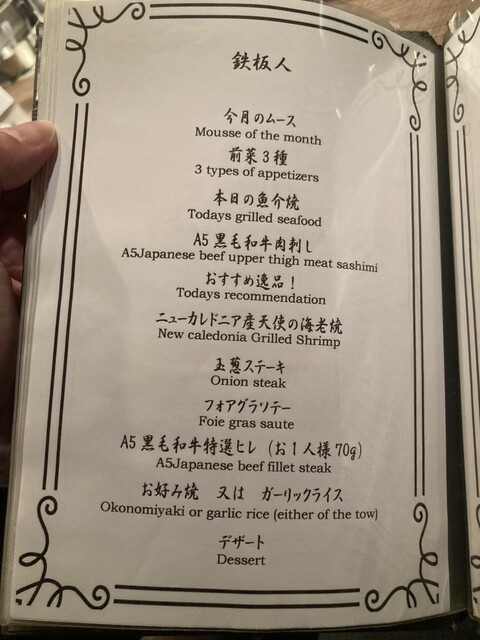 鉄板人
今月のムース
Mousse of the month
前菜3種
3 types of appetizers
本日の魚介焼
Todays grilled seafood
A5黒毛和牛肉刺し
A5Japanese beef upper thigh meat sashimi
おすすめ逸品！
Todays recommendation
ニューカレドニア産天使の海老焼
New caledonia Grilled Shrimp
玉葱ステーキ
Onion steak
フォアグラソテー
Foie gras saute
A5黒毛和牛特選ヒレ（お1人様70g）
A5Japanese beef fillet steak
お好み焼 又は ガーリックライス
Okonomiyaki or garlic rice (either of the tow)
デザート
Dessert